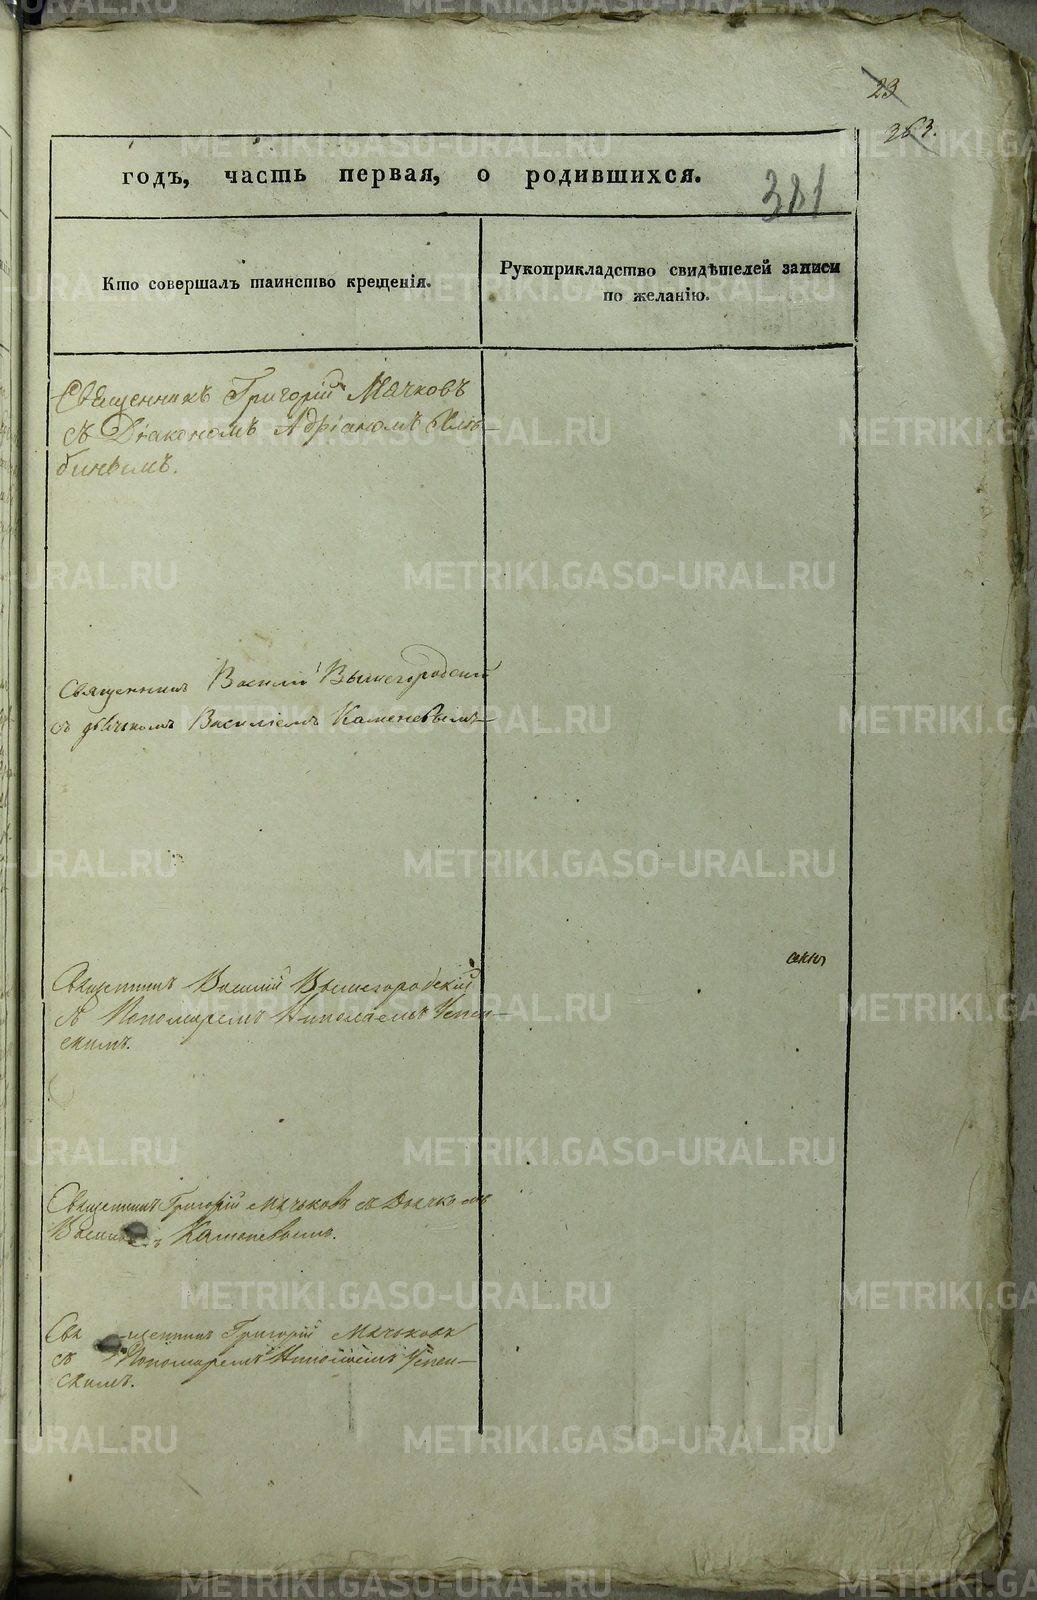 23
363.
годъ, часть первая, о родившихся.
381
Кто совершалъ таинство крещенія.
Рукоприкладство свидѣтелей записи
по желанію.
Священникъ Григорій Мачковъ
съ Діакономъ Адріаномъ
бинымъ.
Священникъ Василій Вышегородскій
съ дьячкомъ Василіемъ Каменевымъ
Священникъ Василій Вышегородскій
съ Пономаремъ Николаемъ Успен-
скимъ.
Священникъ Григорій Мачьковъ съ Дьячкомъ
Каменевымъ.
Священникъ Григорій Мачьковъ
съ Пономаремъ Николаемъ Успен-
скимъ.
METRIKI.GASO-URAL.RU